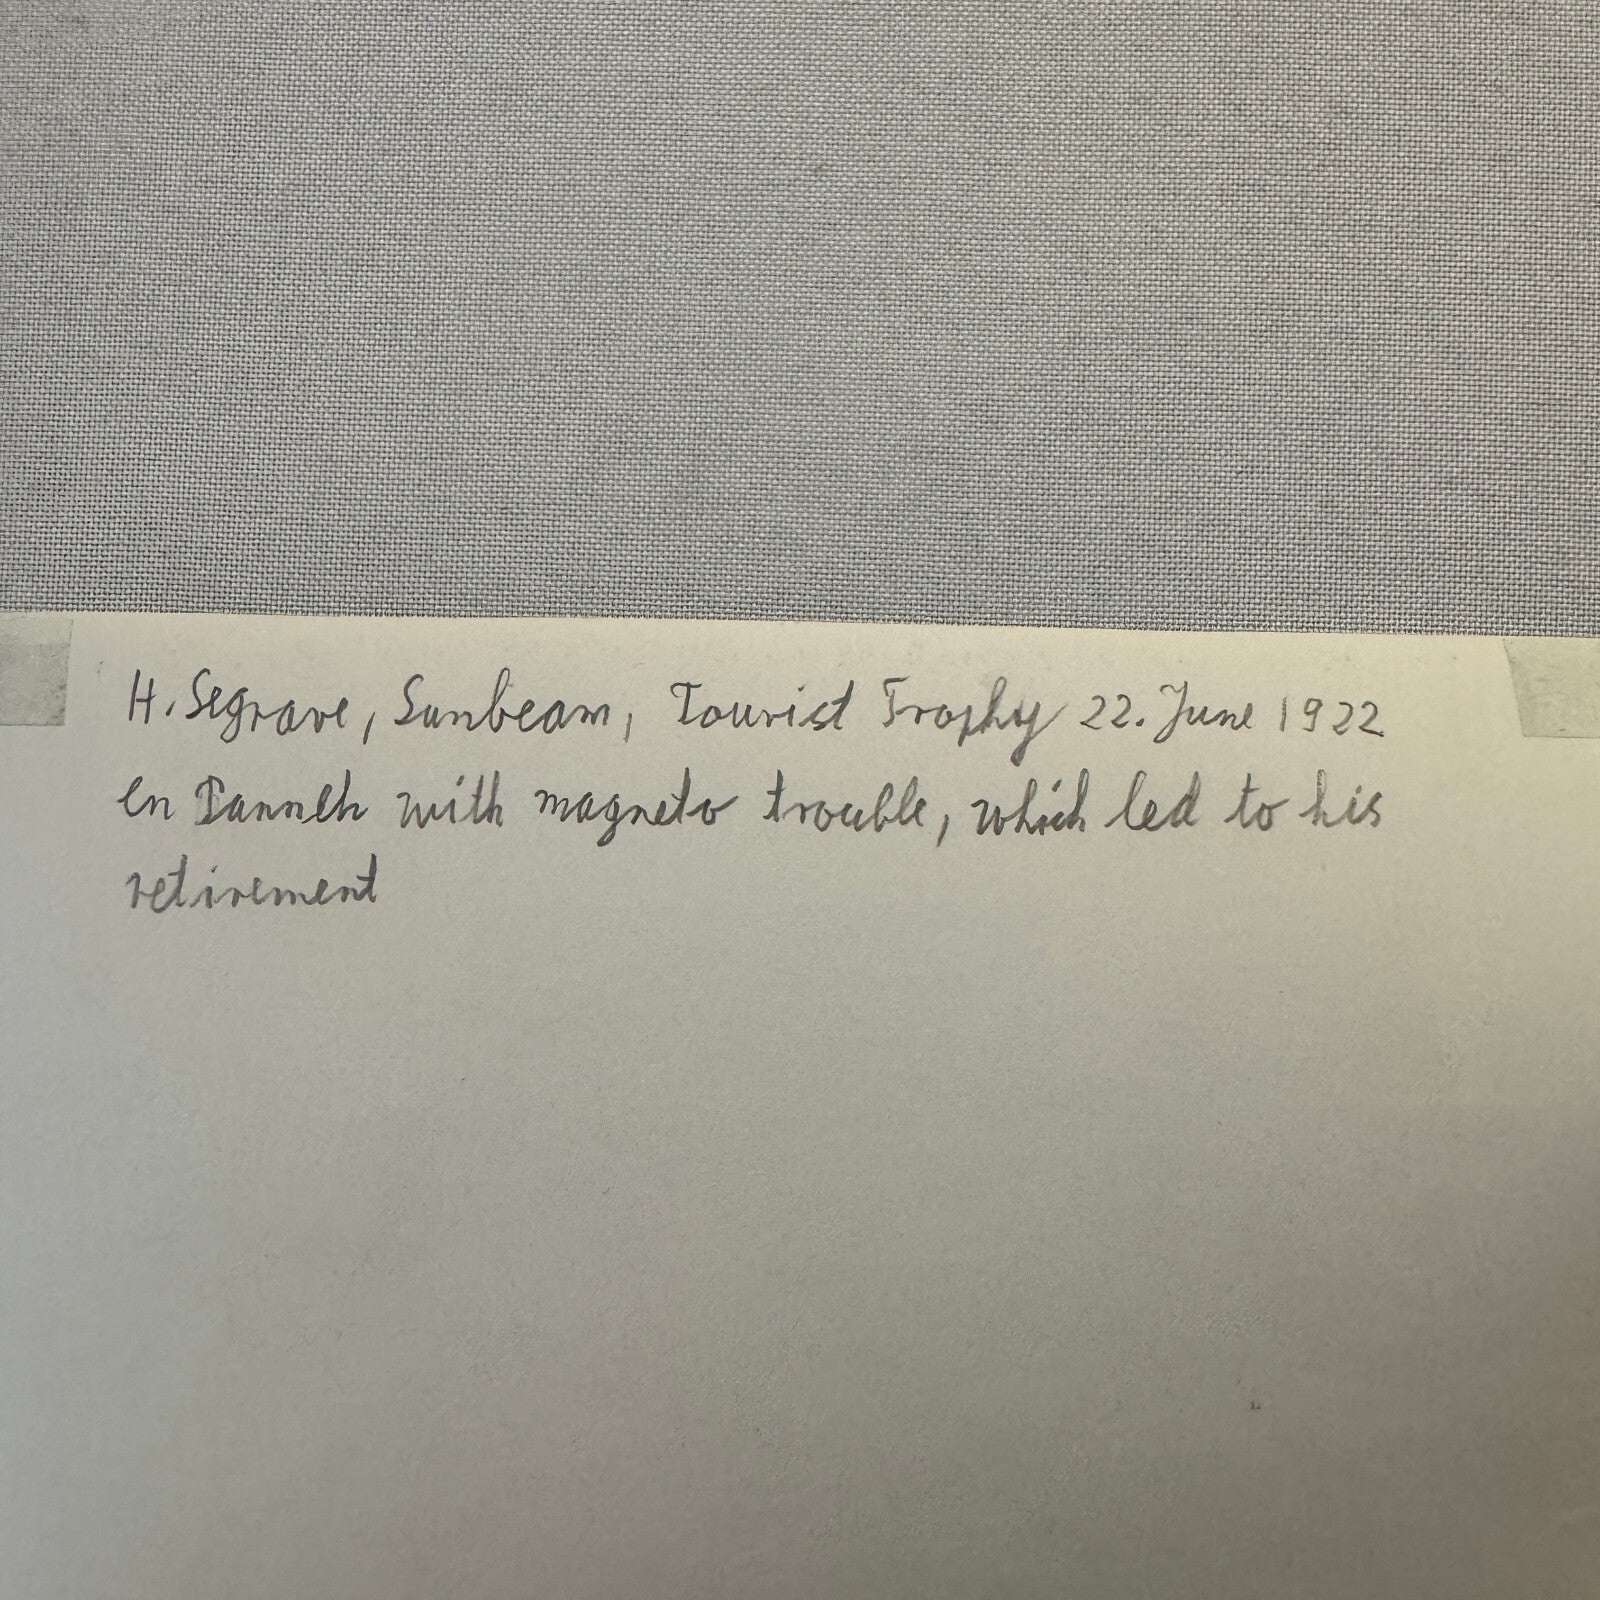 H. Segrave, Sunbeam, Tourist Trophy 22. June 1922
en with magneto trouble, which led to his
retirement